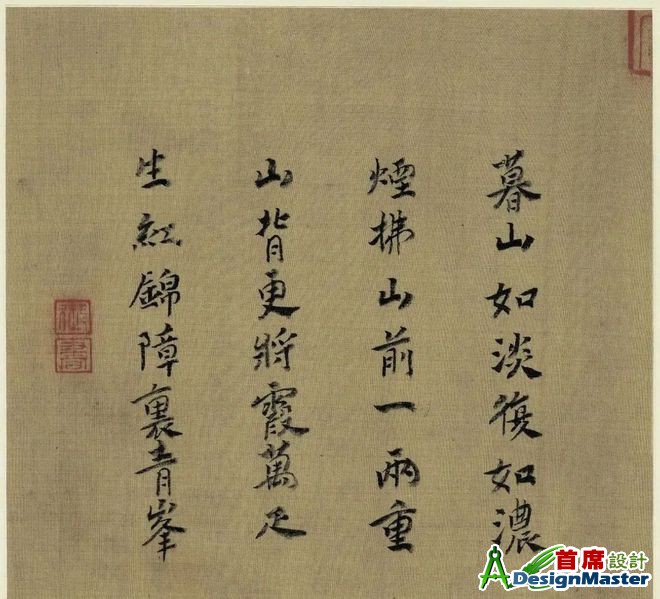 暮山如淡復如濃
煙拂山前一兩重
山背更將霞萬疋
生紅錦障裏青峯
御書
首席設計
DesignMaster